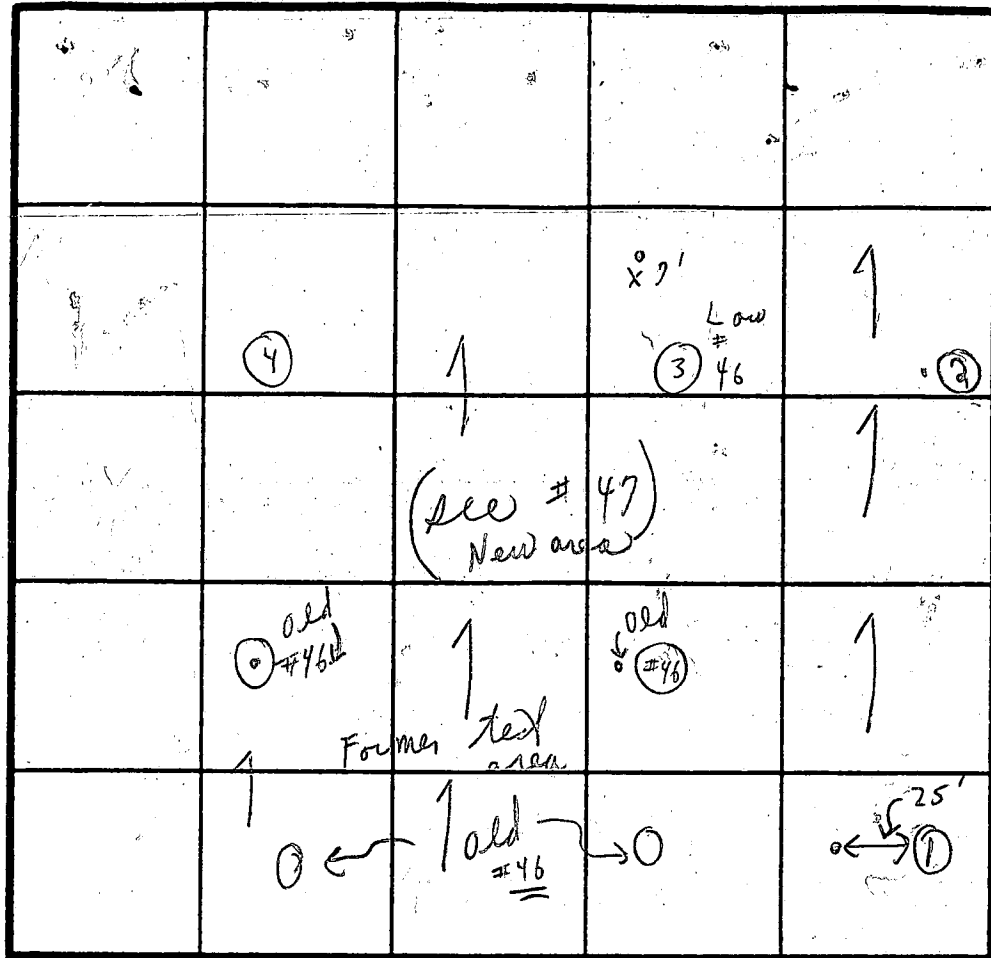 x 7'
Low
#
4
3
46
2
(see # 47)
New area
old
#46
old
#46
Former test
area
25'
old
#46
1